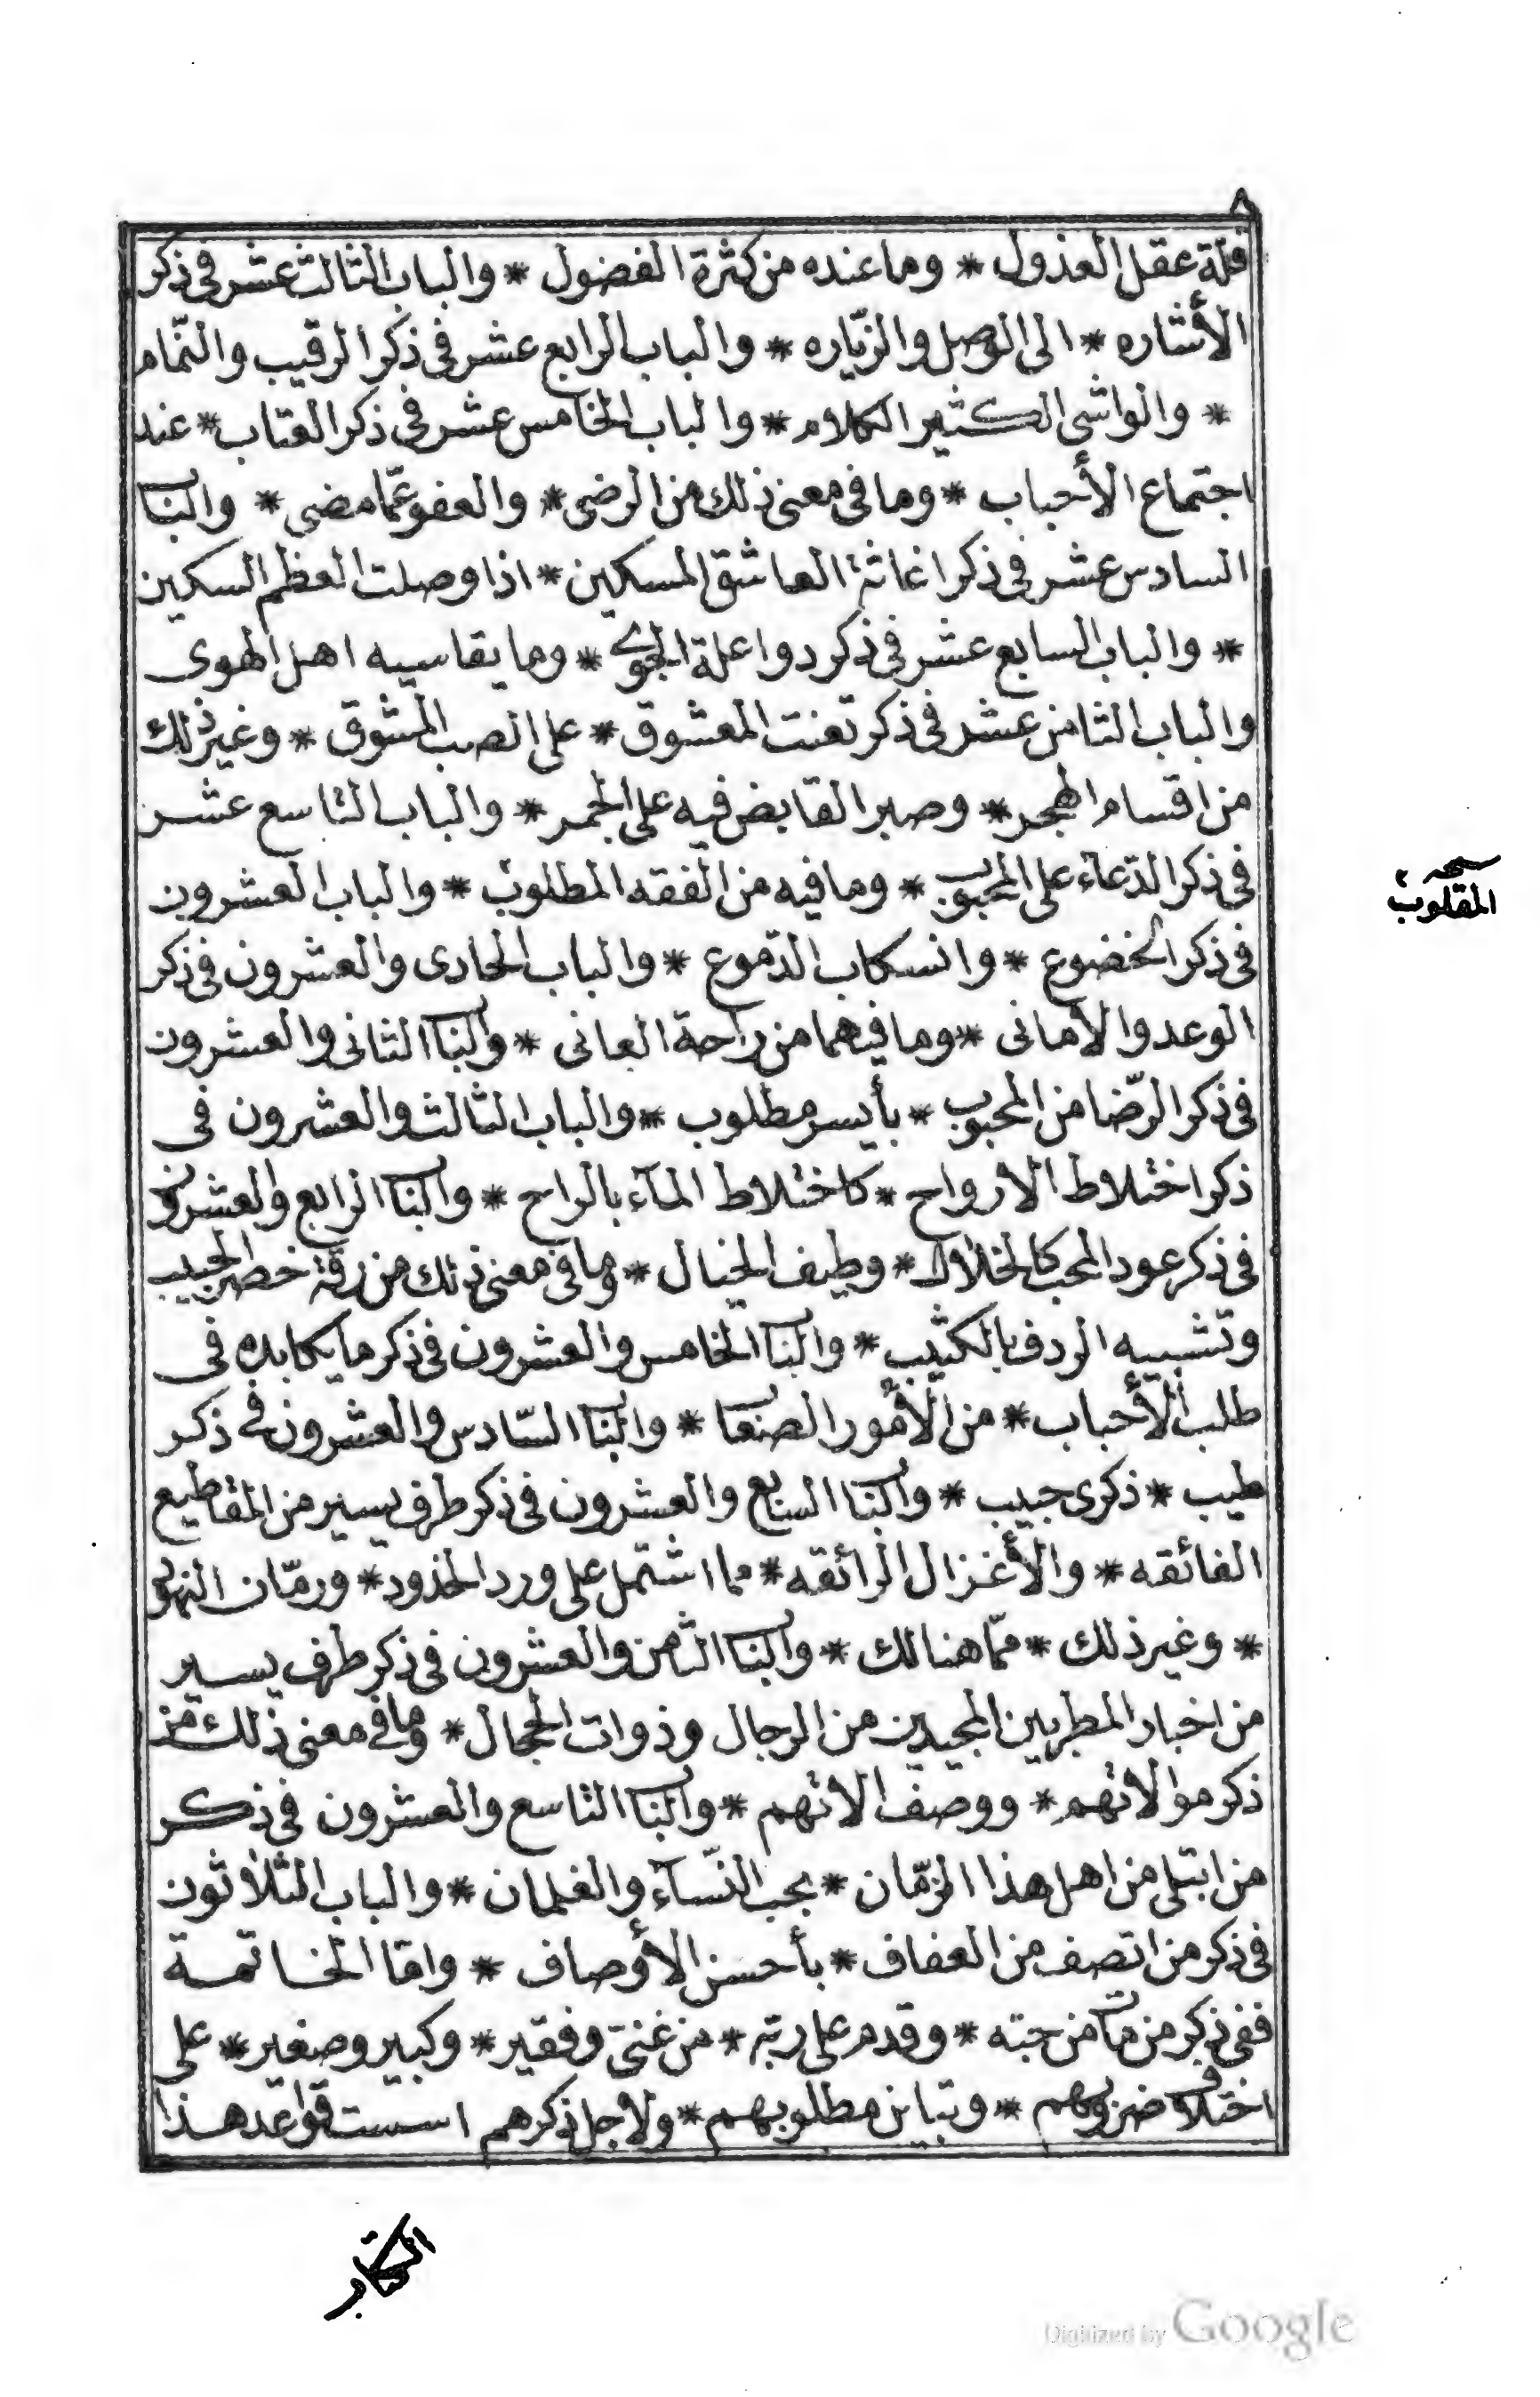 ٨
قلة عقل العذول * وما عنده من كثرة الفضول * والباب الثالث عشر في ذكر
الأشاره * الى الوصل والزّياره * والباب الرابع عشر في ذكر الرقيب والنّمام
* والواشى الكثير الكلام * والباب الخامس عشر في ذكر العتاب * عند
اجتماع الأحباب * وما في معنى ذلك من الرضى * والعفو عمّا مضى * والباب
السادس عشر في ذكر اغاثة العاشق المسكين * اذا وصلت العظم السكين
* والباب السابع عشر في ذكر دوا علة الجوى * وما يقاسيه اهل الهوى
والباب الثامن عشر في ذكر تعنت المعشوق * على الصب المشوق * وغير ذلك
من اقسام الهجر * وصبر القابض فيه على الجمر * والباب التاسع عشر
في ذكر الدّعاء على المحبوب * وما فيه من الفقه المطلوب * والباب العشرون
في ذكر الخضوع * وانسكاب الدّموع * والباب الحادى والعشرون في ذكر
الوعد والأمانى * وما فيهما من راحة العانى * والباب الثانى والعشرون
في ذكر الرّضا من المحبوب * بأيسر مطلوب * والباب الثالث والعشرون في
ذكر اختلاط الارواح * كاختلاط المآء بالراح * والباب الرابع والعشرون
في ذكر عود المحب كالخلال * وطيف الخيال * وما في معنى ذلك من رقة خصر الحبيب
وتشبيه الردف بالكثيب * والباب الخامس والعشرون في ذكر ما يكابده في
طلب الأحباب * من الأمور الصعاب * والباب السّادس والعشرون في ذكر
طيب * ذكرى حبيب * والباب السابع والعشرون في ذكر طرف يسير من المقاطيع
الفائقه * والأغزال الرائقه * مما اشتمل على ورد الخدود * ورمّان النهود
* وغير ذلك * ممّا هنالك * والباب الثامن والعشرون في ذكر طرف يسير
من اخبار المطربين المجيدين من الرجال وذوات الحجال * وما في معنى ذلك من
ذكر موالاتهم * ووصف الاتهم * والباب التاسع والعشرون في ذكر
من ابتلى من اهل هذا الزّمان * بحب النّسآء والغلمان * والباب الثلاثون
في ذكر من اتصف من العفاف * بأحسن الأوصاف * وامّا الخاتمة
ففي ذكر من مات من حبّه * وقدم على ربّه * من غنىّ وفقير * وكبير وصغير * على
اختلاف ضروبهم * وتباين مطلوبهم * ولاجل ذكرهم اسست قواعد هذا
نسخه ٢
المقلوب
الكتاب
Digitized by Google